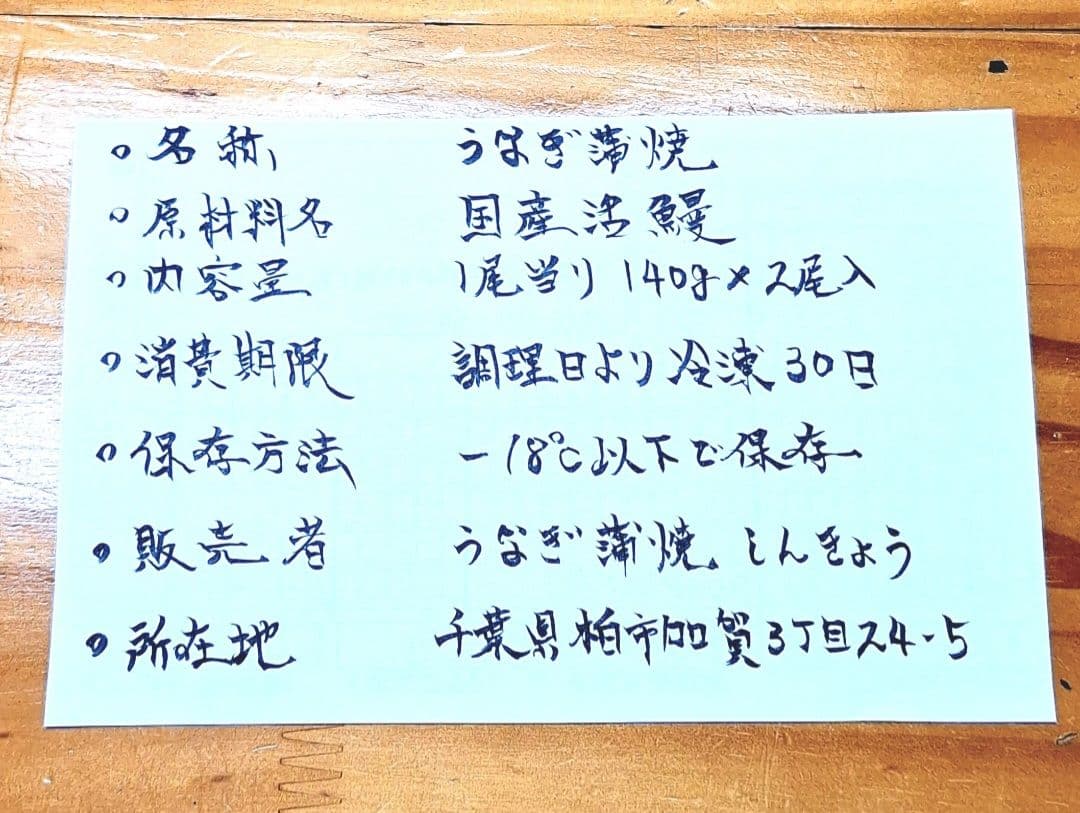 ○名称 うなぎ蒲焼
○原材料名 国産活鰻
○内容量 1尾当り 140g×2尾入
○消費期限 調理日より冷凍30日
○保存方法 -18℃以下で保存
○販売者 うなぎ蒲焼 しんきょう
○所在地 千葉県柏市加賀3丁目24-5